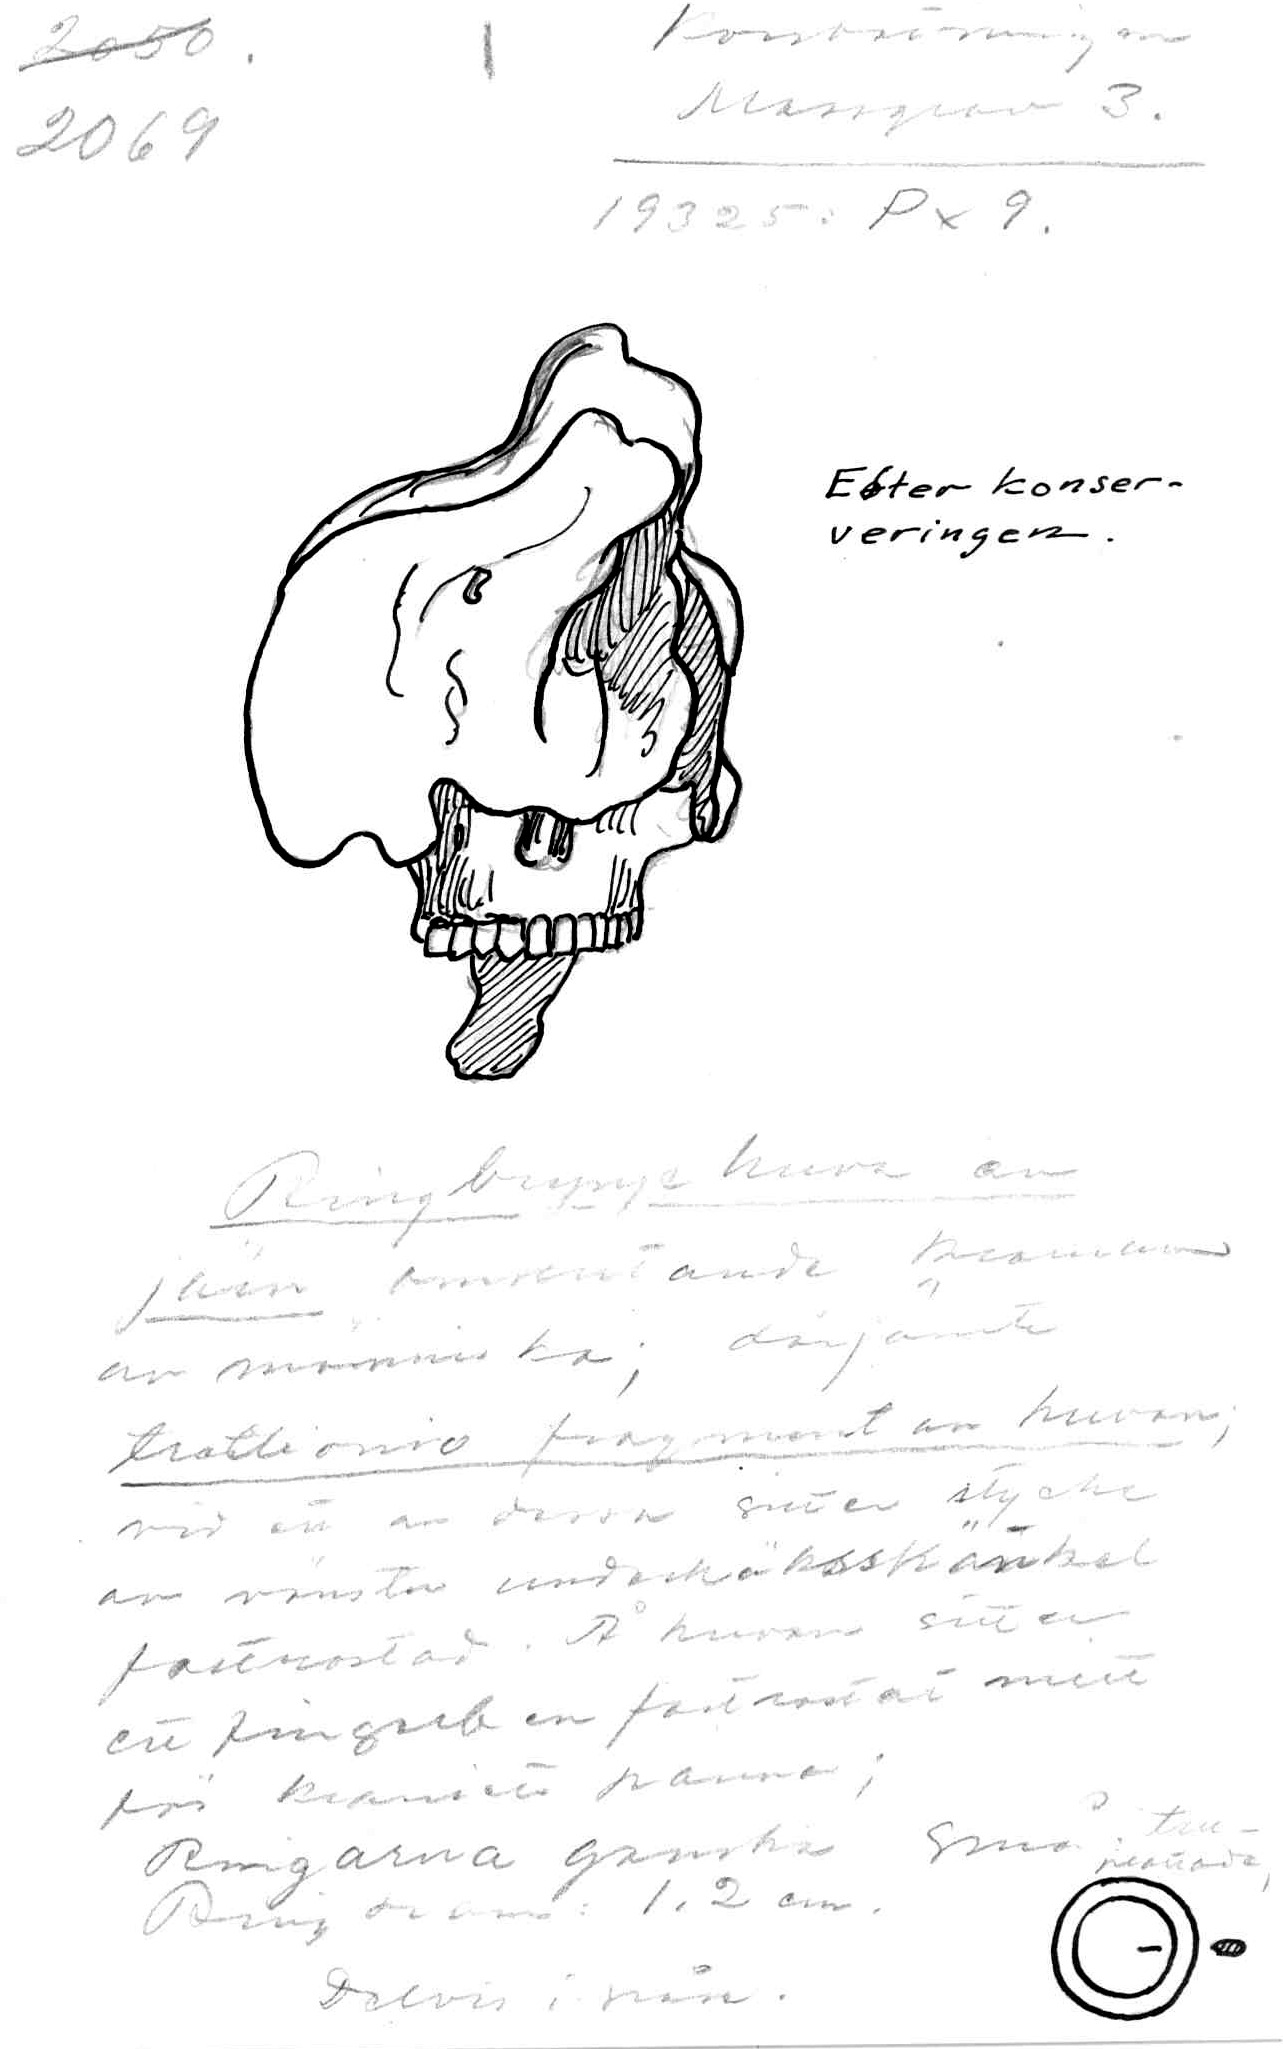 2050.
2069
Korsbetningen
Massgrav 3.
19325: P x 9.
Efter konser-
veringen.
Ringbrynjehuva av
järn omslutande kranium
av människa; därjämte
trettionio fragment av huvan;
vid ett av dessa sitter stycke
av vänstra underkäksskänkel
fastrostad. Å huvan sitter
ett fingerben fastrostat mitt
för kraniets panna;
Ringarna ganska små
Ring diam: 1,2 cm.
Delvis i